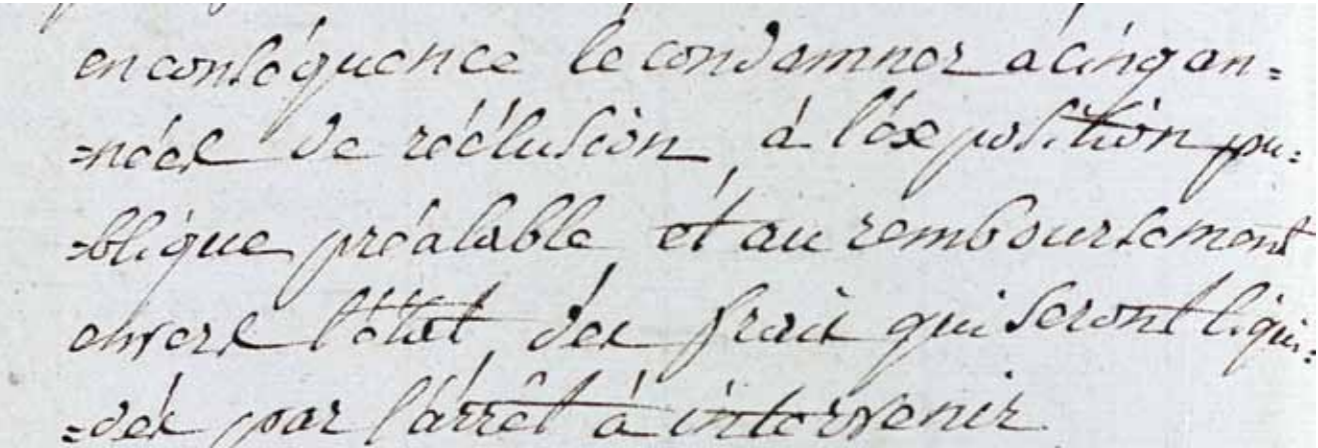 en conséquence le condamner à cinq an=
=nées de réélusion, à l'éxposition pu=
=blique préalable, et au remboursement
envers l'état, des frais qui seront liqui=
=dés par l'arrêt à intervenir